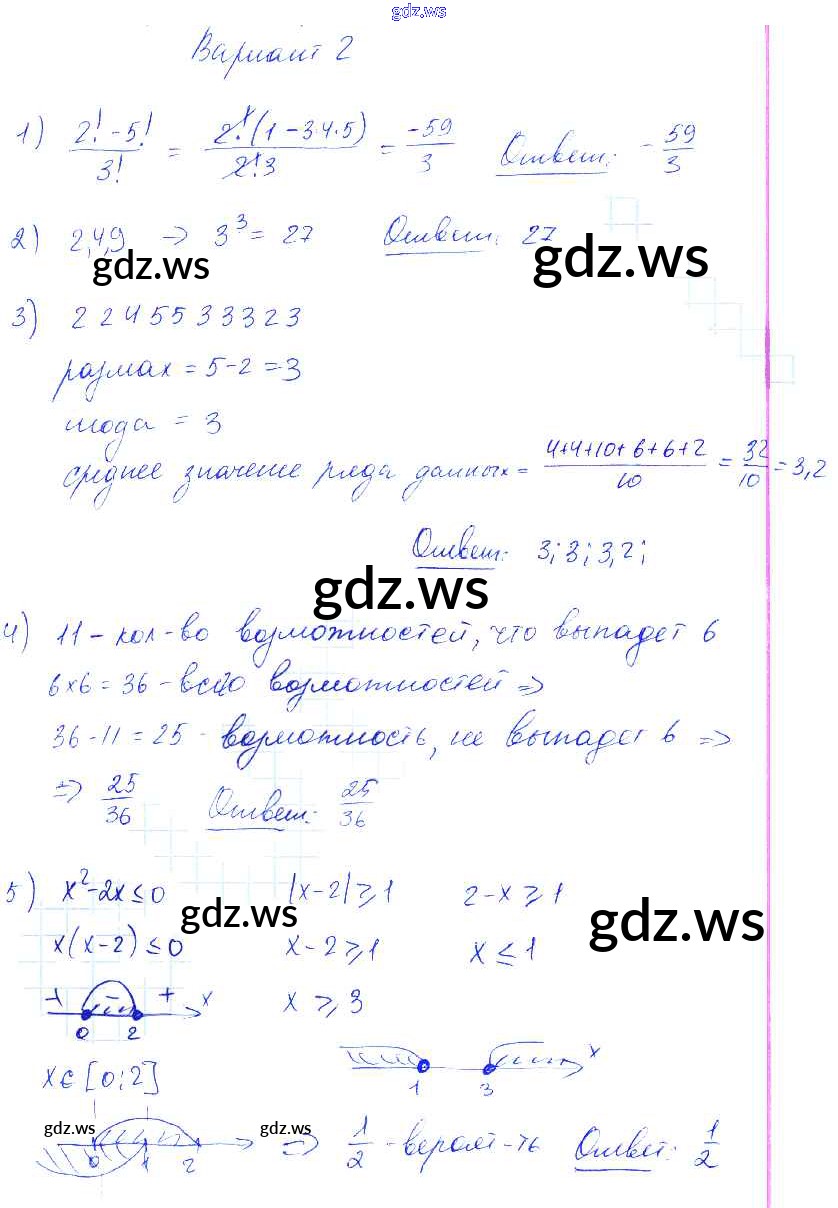 gdz.ws
Вариант 2
1) (2! - 5!)/3! = 2!(1 - 3·4·5)/(2!·3) = -59/3 Ответ: -59/3
2) 2,4,9 → 3³ = 27 Ответ: 27
gdz.ws gdz.ws
3) 2 2 4 5 5 3 3 3 2 3
размах = 5-2 = 3
мода = 3
среднее значение ряда данных = (4+4+10+6+6+2)/10 = 32/10 = 3,2
Ответ: 3; 3; 3,2;
gdz.ws
4) 11 - кол-во возможностей, что выпадет 6
6×6 = 36 - всего возможностей ⇒
36 - 11 = 25 - возможность, не выпадет 6 ⇒
⇒ 25/36 Ответ: 25/36
5) x² - 2x ≤ 0 |x-2| ⩾ 1 2-x ⩾ 1
gdz.ws gdz.ws
x(x-2) ≤ 0 x-2 ⩾ 1 x ≤ 1
+ - + x x ⩾ 3
0 2
x
x ∈ [0;2] 1 3
gdz.ws gdz.ws
0 1 2 ⇒ 1/2 - вероят-ть Ответ: 1/2